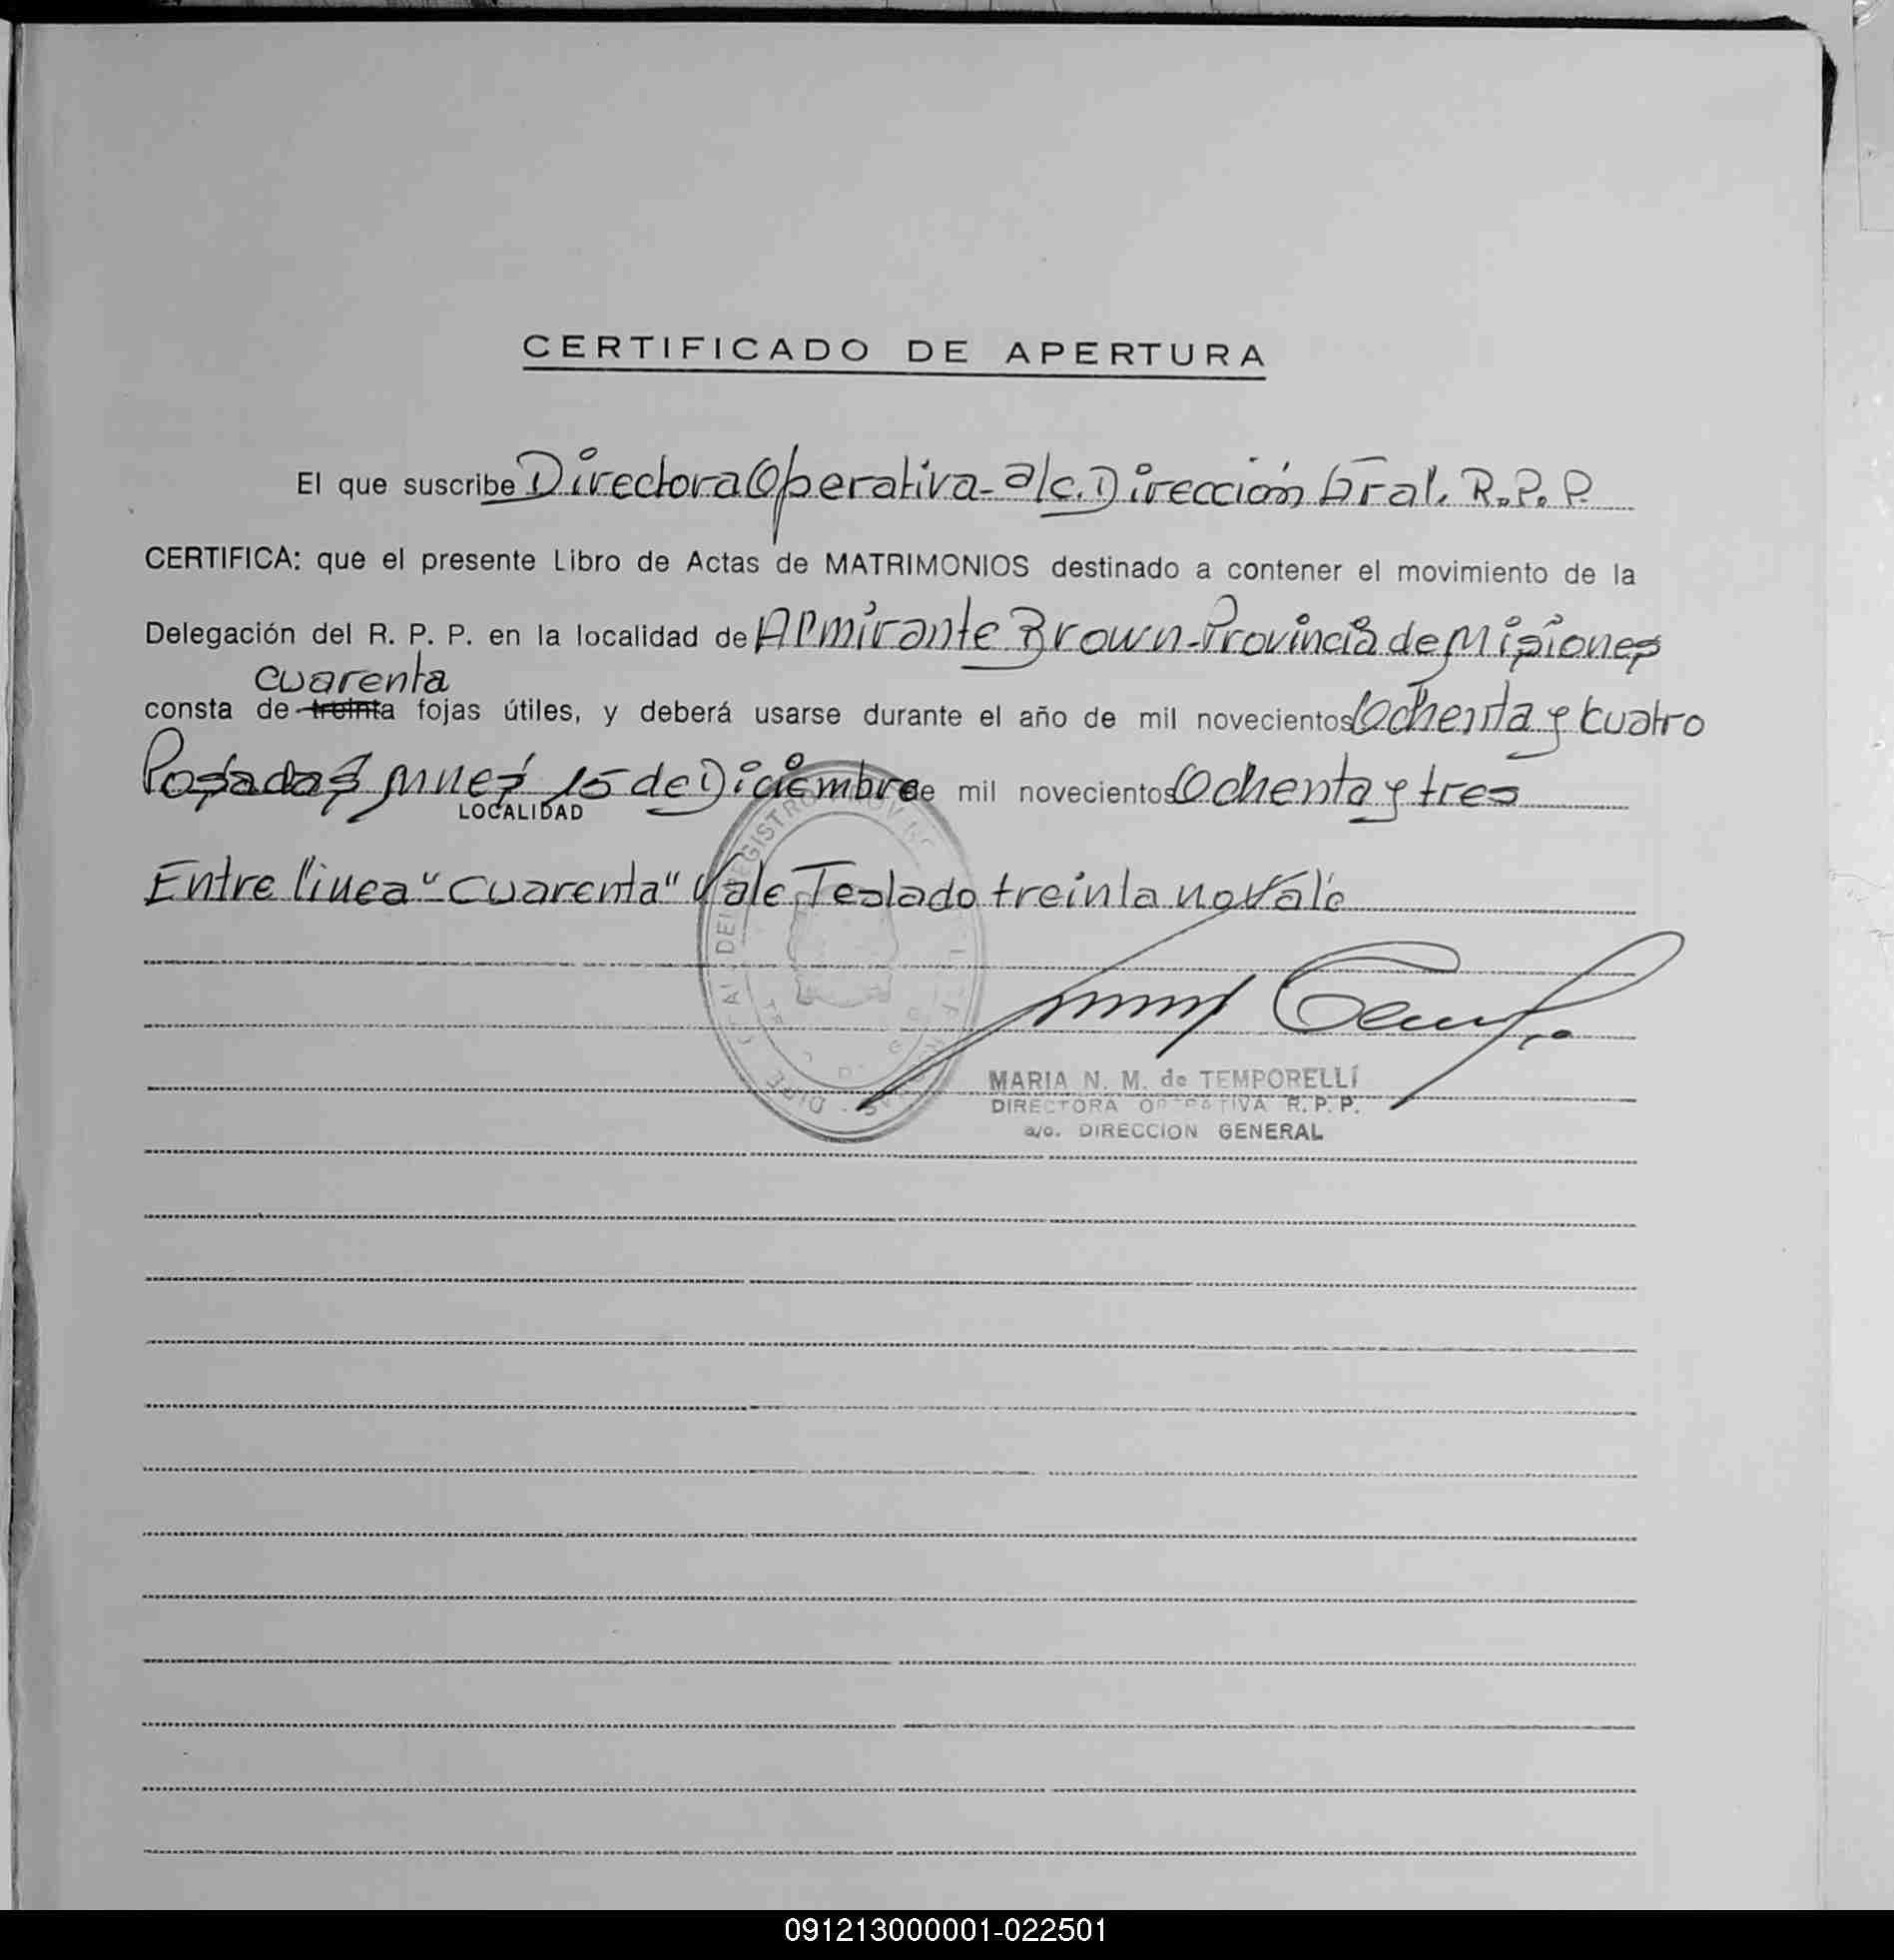 CERTIFICADO DE APERTURA
El que suscribe Directora Operativa - a/c. Dirección Gral. R.P.P.
CERTIFICA: que el presente Libro de Actas de MATRIMONIOS destinado a contener el movimiento de la
Delegación del R. P. P. en la localidad de Almirante Brown - Provincia de Misiones
cuarenta
consta de treinta fojas útiles, y deberá usarse durante el año de mil novecientos Ochenta y cuatro
Posadas, Mnes, 15 de Diciembre de mil novecientos Ochenta y tres
LOCALIDAD
Entre línea "cuarenta" Vale Teslado treinta no Vale
MARIA N. M. de TEMPORELLI
DIRECTORA OPERATIVA R. P. P.
a/c. DIRECCION GENERAL
091213000001-022501